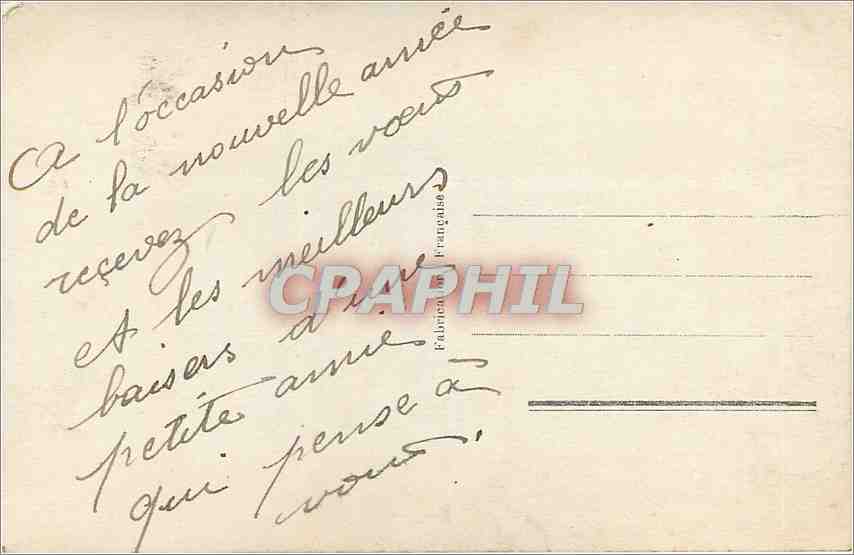 A l'occasion
de la nouvelle année
reçevez les vœux
et les meilleurs
baisers d'une
petite amie
qui pense à
vous.
Fabrication Française
CPAPHIL